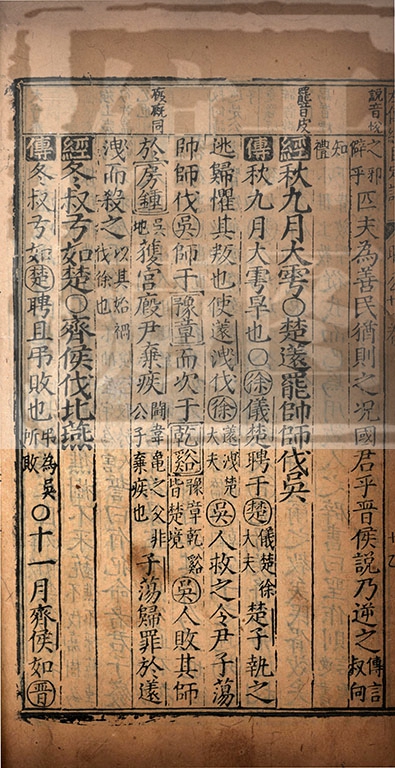 說音悅
匹夫為善民猶則之況國君乎晉侯說乃逆之傳言叔向
知禮
罷音皮
經秋九月大雩○楚薳罷帥師伐吳
傳秋九月大雩旱也○徐儀楚聘于楚儀楚徐大夫楚子執之
逃歸懼其叛也使薳洩伐徐薳洩楚大夫吳人救之令尹子蕩
帥師伐吳師于豫章而次于乾谿豫章乾谿皆楚境吳人敗其師
於房鍾吳地獲宮廄尹棄疾鬬韋龜之父非公子棄疾也子蕩歸罪於薳
洩而殺之以其始禍伐徐也
經冬叔弓如楚○齊侯伐北燕
傳冬叔弓如楚聘且弔敗也弔為吳所敗○十一月齊侯如晉